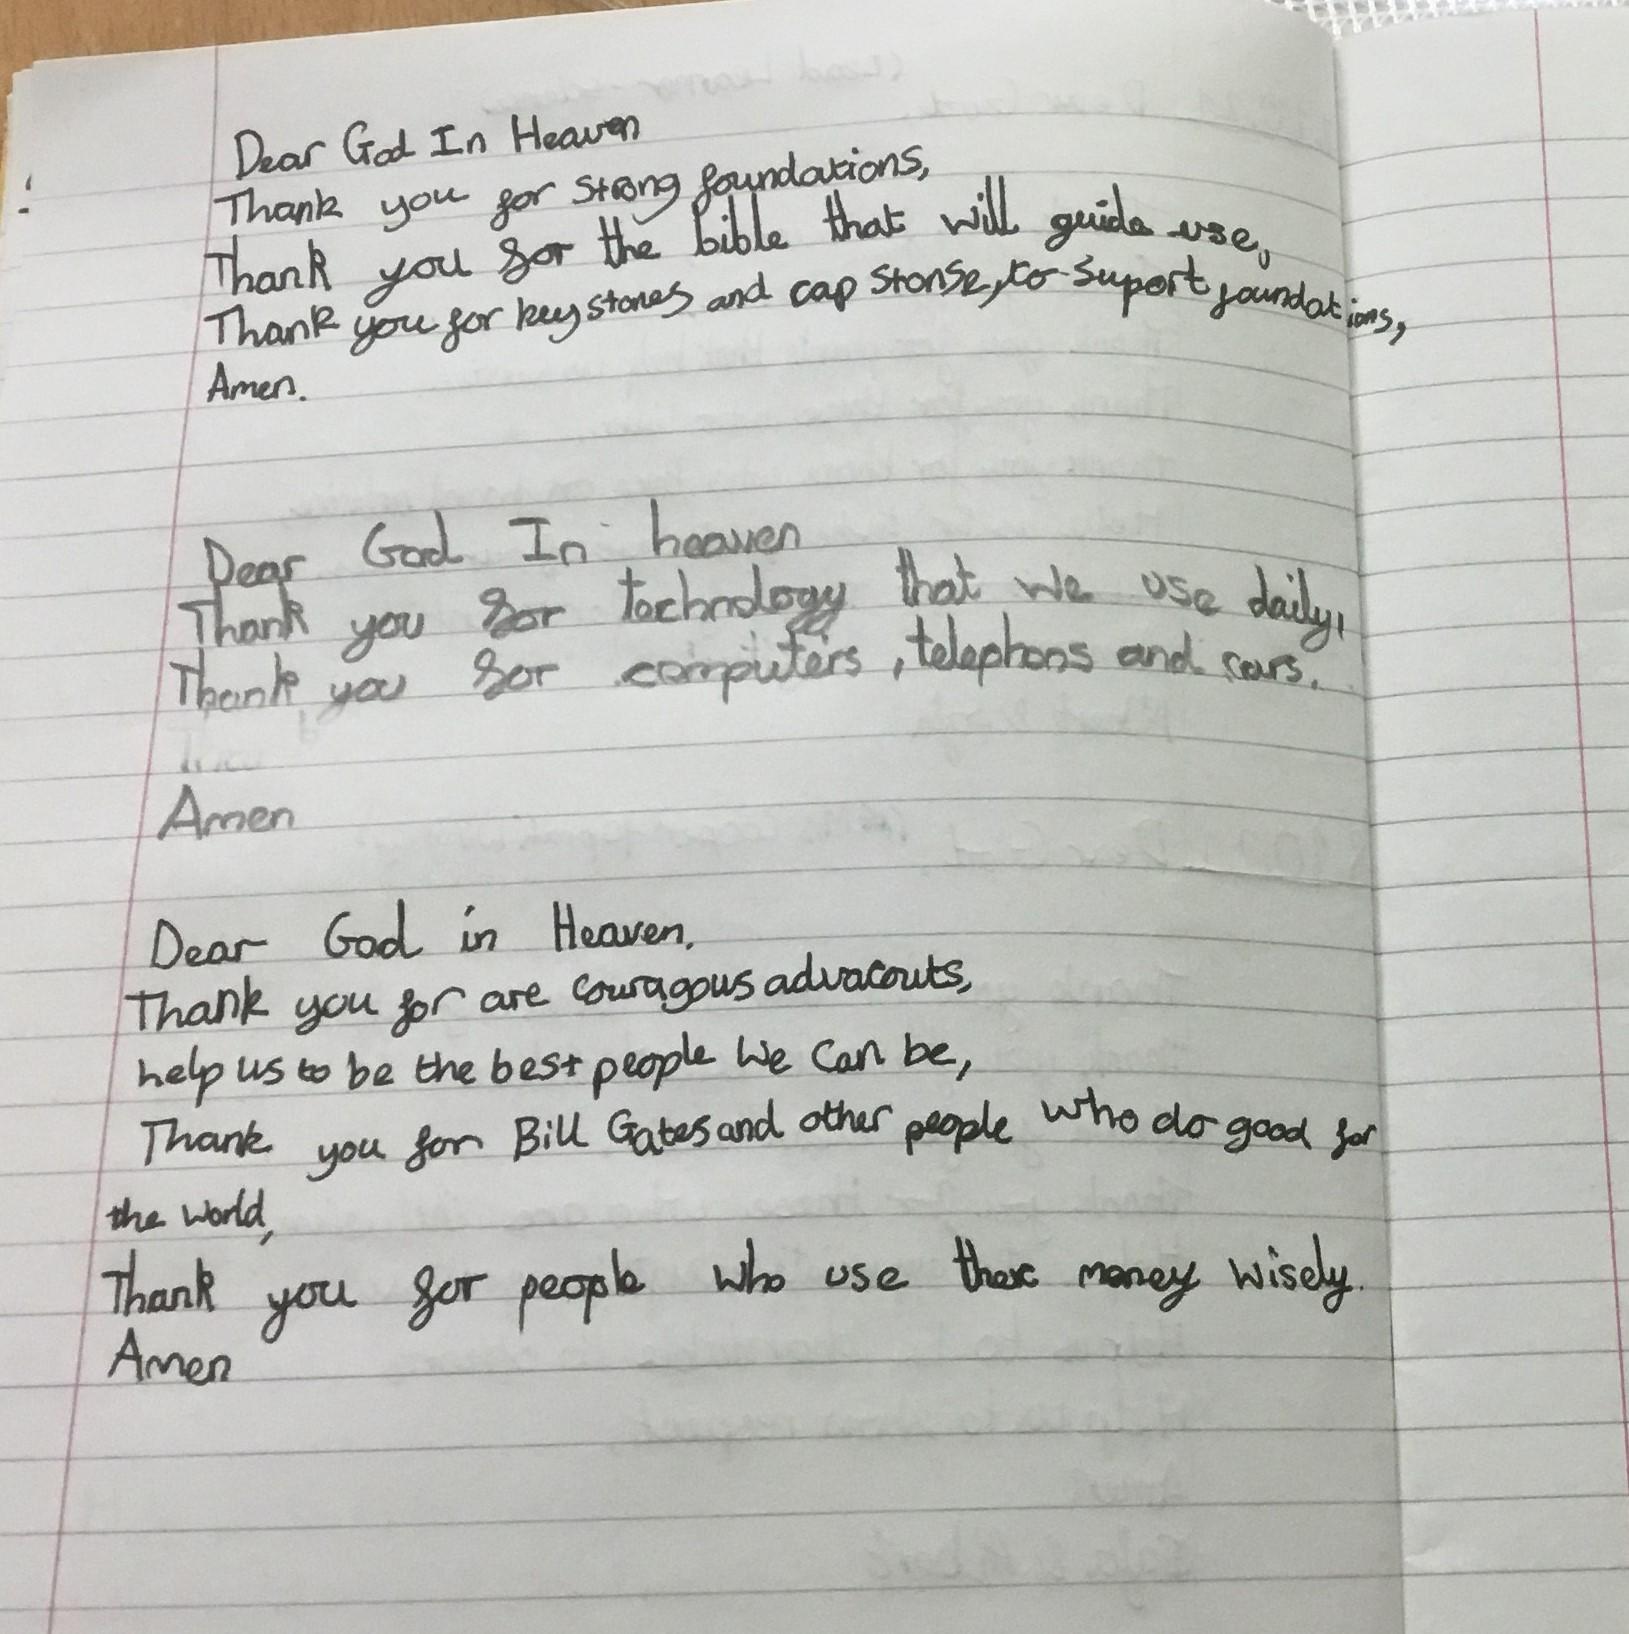 Dear God In Heaven
Thank you for strong foundations,
Thank you for the bible that will guide use,
Thank you for key stones and cap stonse, to suport foundations,
Amen.
Dear God In heaven
Thank you for technology that we use daily,
Thank you for computers, telephons and cars.
Amen
Dear God in Heaven.
Thank you for are couragous advacouts,
help us to be the best people we can be,
Thank you for Bill Gates and other people who do good for
the world,
Thank you for people who use there money wisely.
Amen